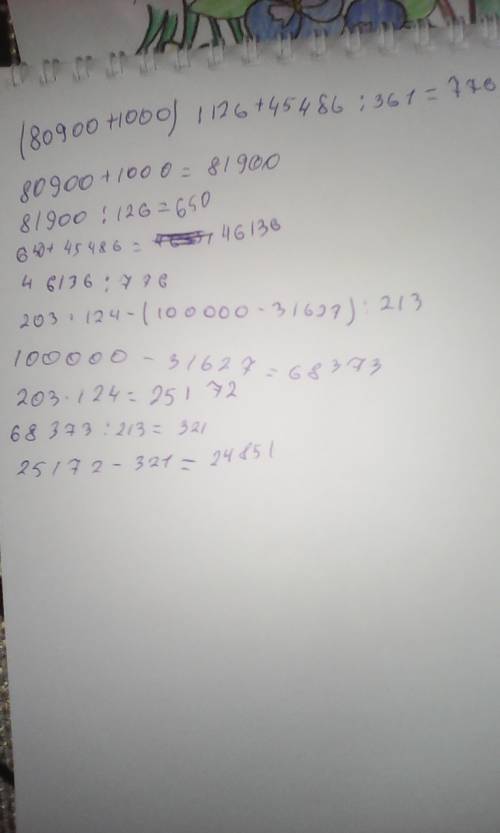 (80900+1000) : 126+45486 : 361 = 776
80900+1000 = 81900
81900 : 126 = 650
640+ 45486 = 46136
46136 : 776
203 · 124-(100000-31627) : 213
100000 - 31627 = 68373
203·124 = 25172
68373 : 213 = 321
25172 - 321 = 24851